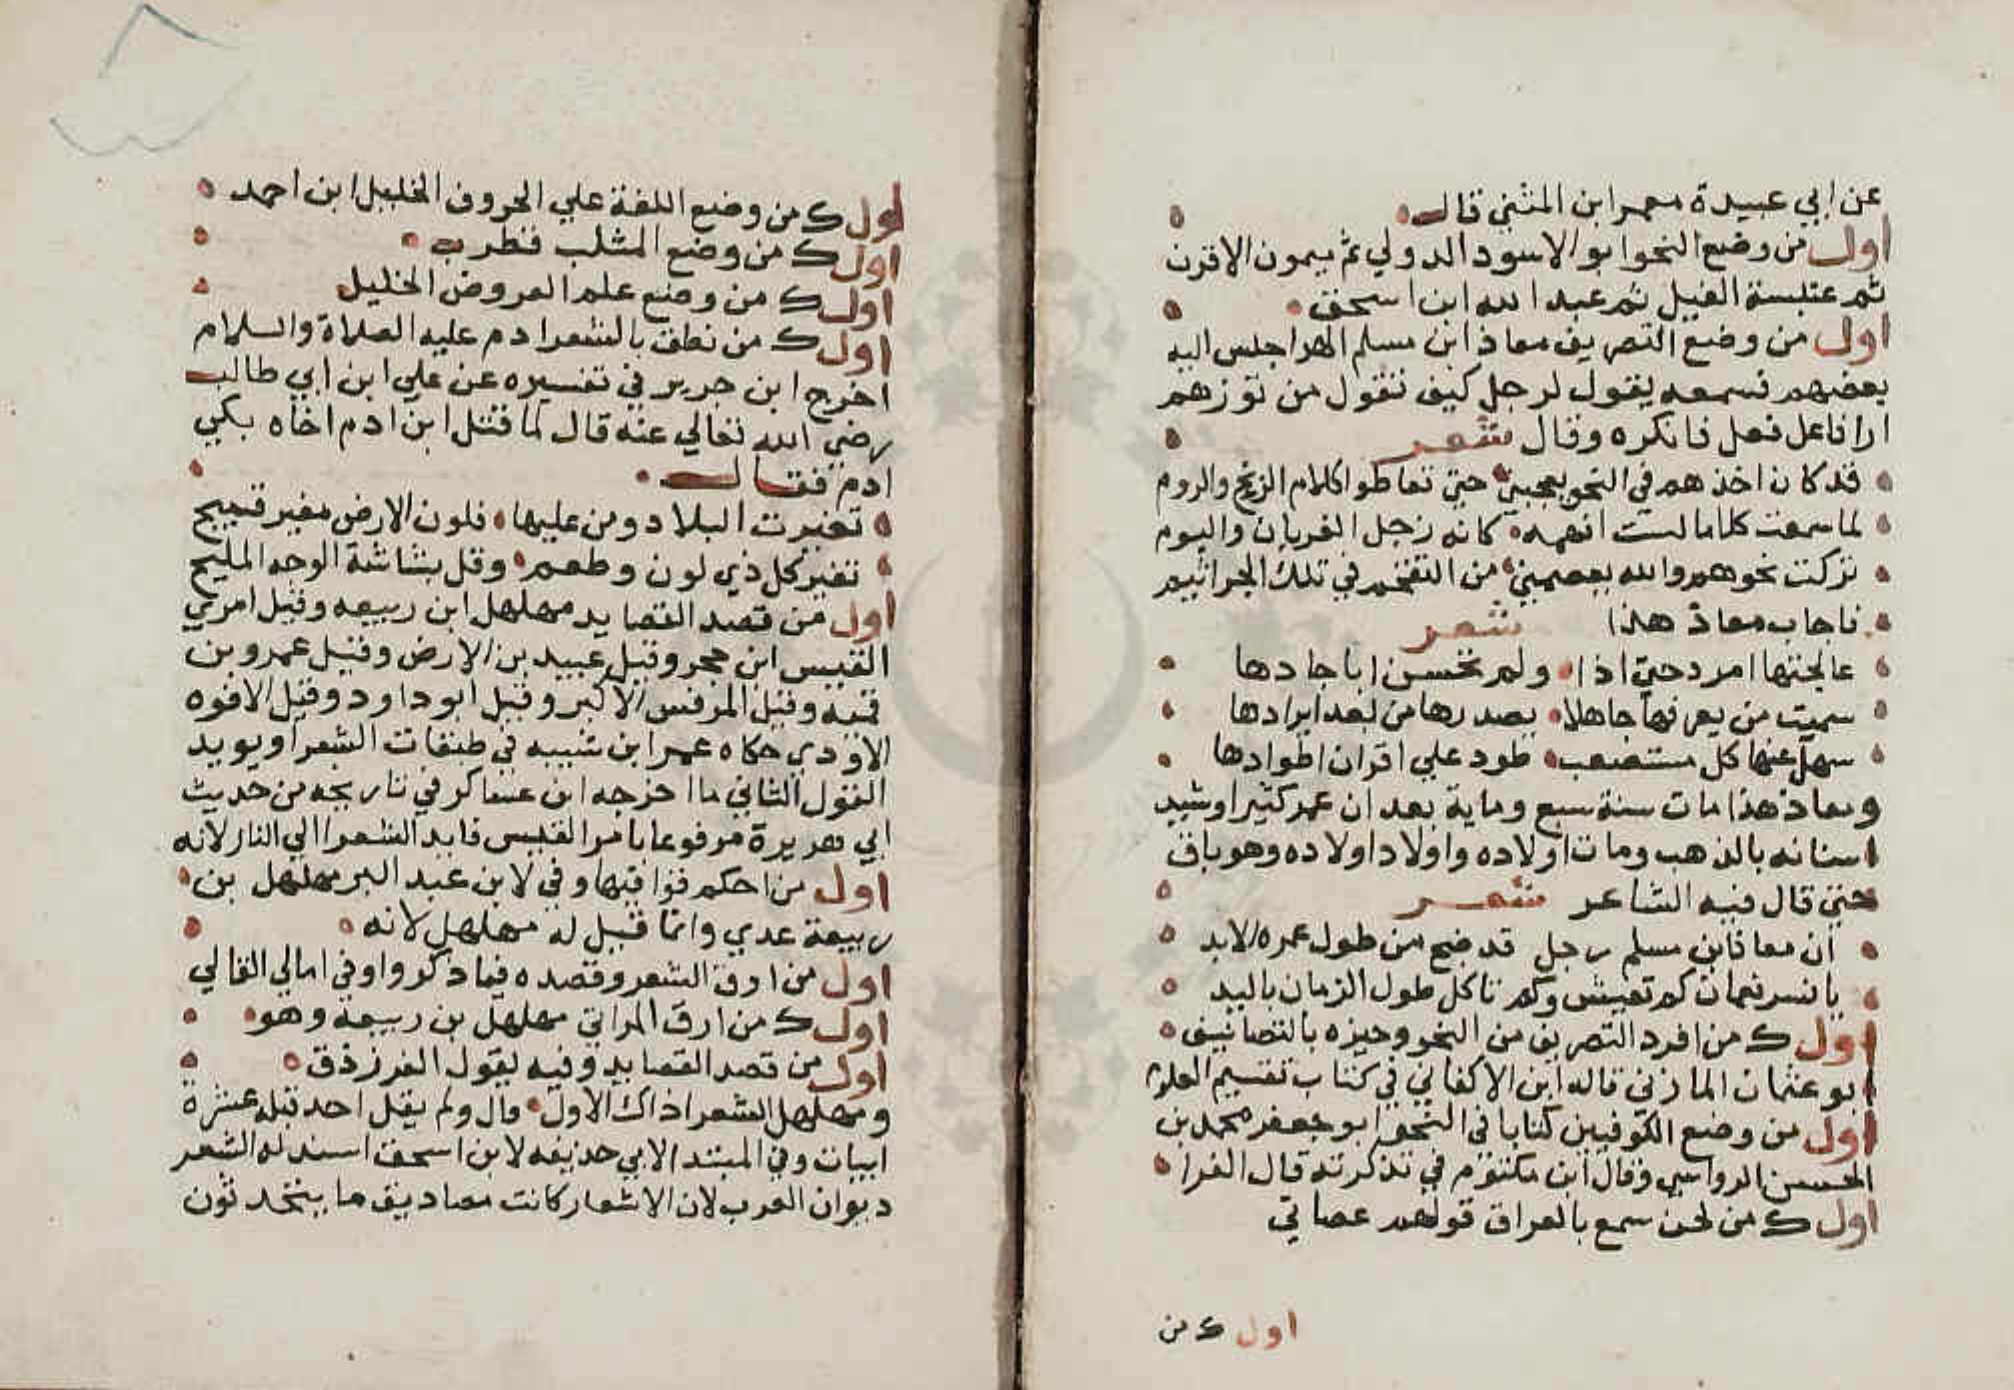 عن ابي عبيدة معمر ابن المثني قال
اول من وضع النحو ابو الاسود الدولي ثم ميمون الاقرن
ثم عنبسة الفيل ثم عبد الله ابن اسحق
اول من وضع التصريف معاذ ابن مسلم الهرا جلس اليه
بعضهم فسمعه يقول لرجل كيف تقول من توزهم
ازا فاعل فعل فانكره وقال شعر
قد كان اخذهم في النحو يعجبني حتي تعاطوا كلام الزنج والروم
لما سمعت كلاما لست افهمه كانه زجل الغربان والبوم
تركت نحوهم والله يعصمني من التقحم في تلك الجراثيم
فاجاب معاذ هذا شعر
عالجتها امرد حتي اذا ولم تحسن اباجادها
سميت من يعرفها جاهلا يصدرها من بعد ايرادها
سهل عنها كل مستصعب طود علي اقران اطوادها
ومعاذ هذا مات سنة سبع وماية بعد ان عمر كثيرا وشيد
اسنانه بالذهب ومات اولاده واولاد اولاده وهو باق
حتي قال فيه الشاعر شعر
ان معاذ ابن مسلم رجل قد ضج من طول عمره الابد
يا نسر لقمان كم تعيش وكم تاكل طول الزمان يالبد
اول ك من افرد التصريف من النحو وحيزه بالتصانيف
ابو عثمان المازني قاله ابن الاكفاني في كتاب تقسيم العلوم
اول من وضع الكوفيين كتابا في النحو ابو جعفر محمد بن
الحسن الرواسي وقال ابن مكتوم في تذكرته قال الفرا
اول ك من لحن سمع بالعراق قولهم عصاتي
اول ك من
اول ك من وضع اللغة علي الحروف الخليل ابن احمد
اول ك من وضع المثلب قطرب
اول ك من وضع علم العروض الخليل
اول ك من نطق بالشعر ادم عليه الصلاة والسلام
اخرج ابن جرير في تفسيره عن علي ابن ابي طالب
رضي الله تعالي عنه قال لما قتل ابن ادم اخاه بكي
ادم فقال
تغيرت البلاد ومن عليها فلون الارض مغبر قبيح
تغير كل ذي لون وطعم وقل بشاشة الوجه المليح
اول من قصد القصايد مهلهل ابن ربيعه وقيل امري
القيس ابن حجر وقيل عبيد بن الارض وقيل عمرو بن
قميه وقيل المرقس الاكبر وقيل ابو داود وقيل الافوه
الاودي حكاه عمر ابن شبيبه في طبقات الشعرا ويويد
القول الثاني ما اخرجه ابن عساكر في تاريخه من حديث
ابي هريرة مرفوعا بامر القيس قايد الشعرا الي النار لانه
اول من احكم قوافيها وفي لابن عبد البر مهلهل بن
ربيعة عدي وانما قيل له مهلهل لانه
اول من ارق الشعر وقصده فيما ذكروا وفي امالي القالي
اول ك من ارق المراثي مهلهل بن ربيعة وهو
اول من قصد القصايد وفيه يقول الفرزذق
ومهلهل الشعرا ذاك الاول قال ولم يقل احد قبله عشرة
ابيات وفي المبتدا لابي حذيفه لابن اسحق اسند له الشعر
ديوان العرب لان الاشعار كانت مصاديق ما يتحدثون